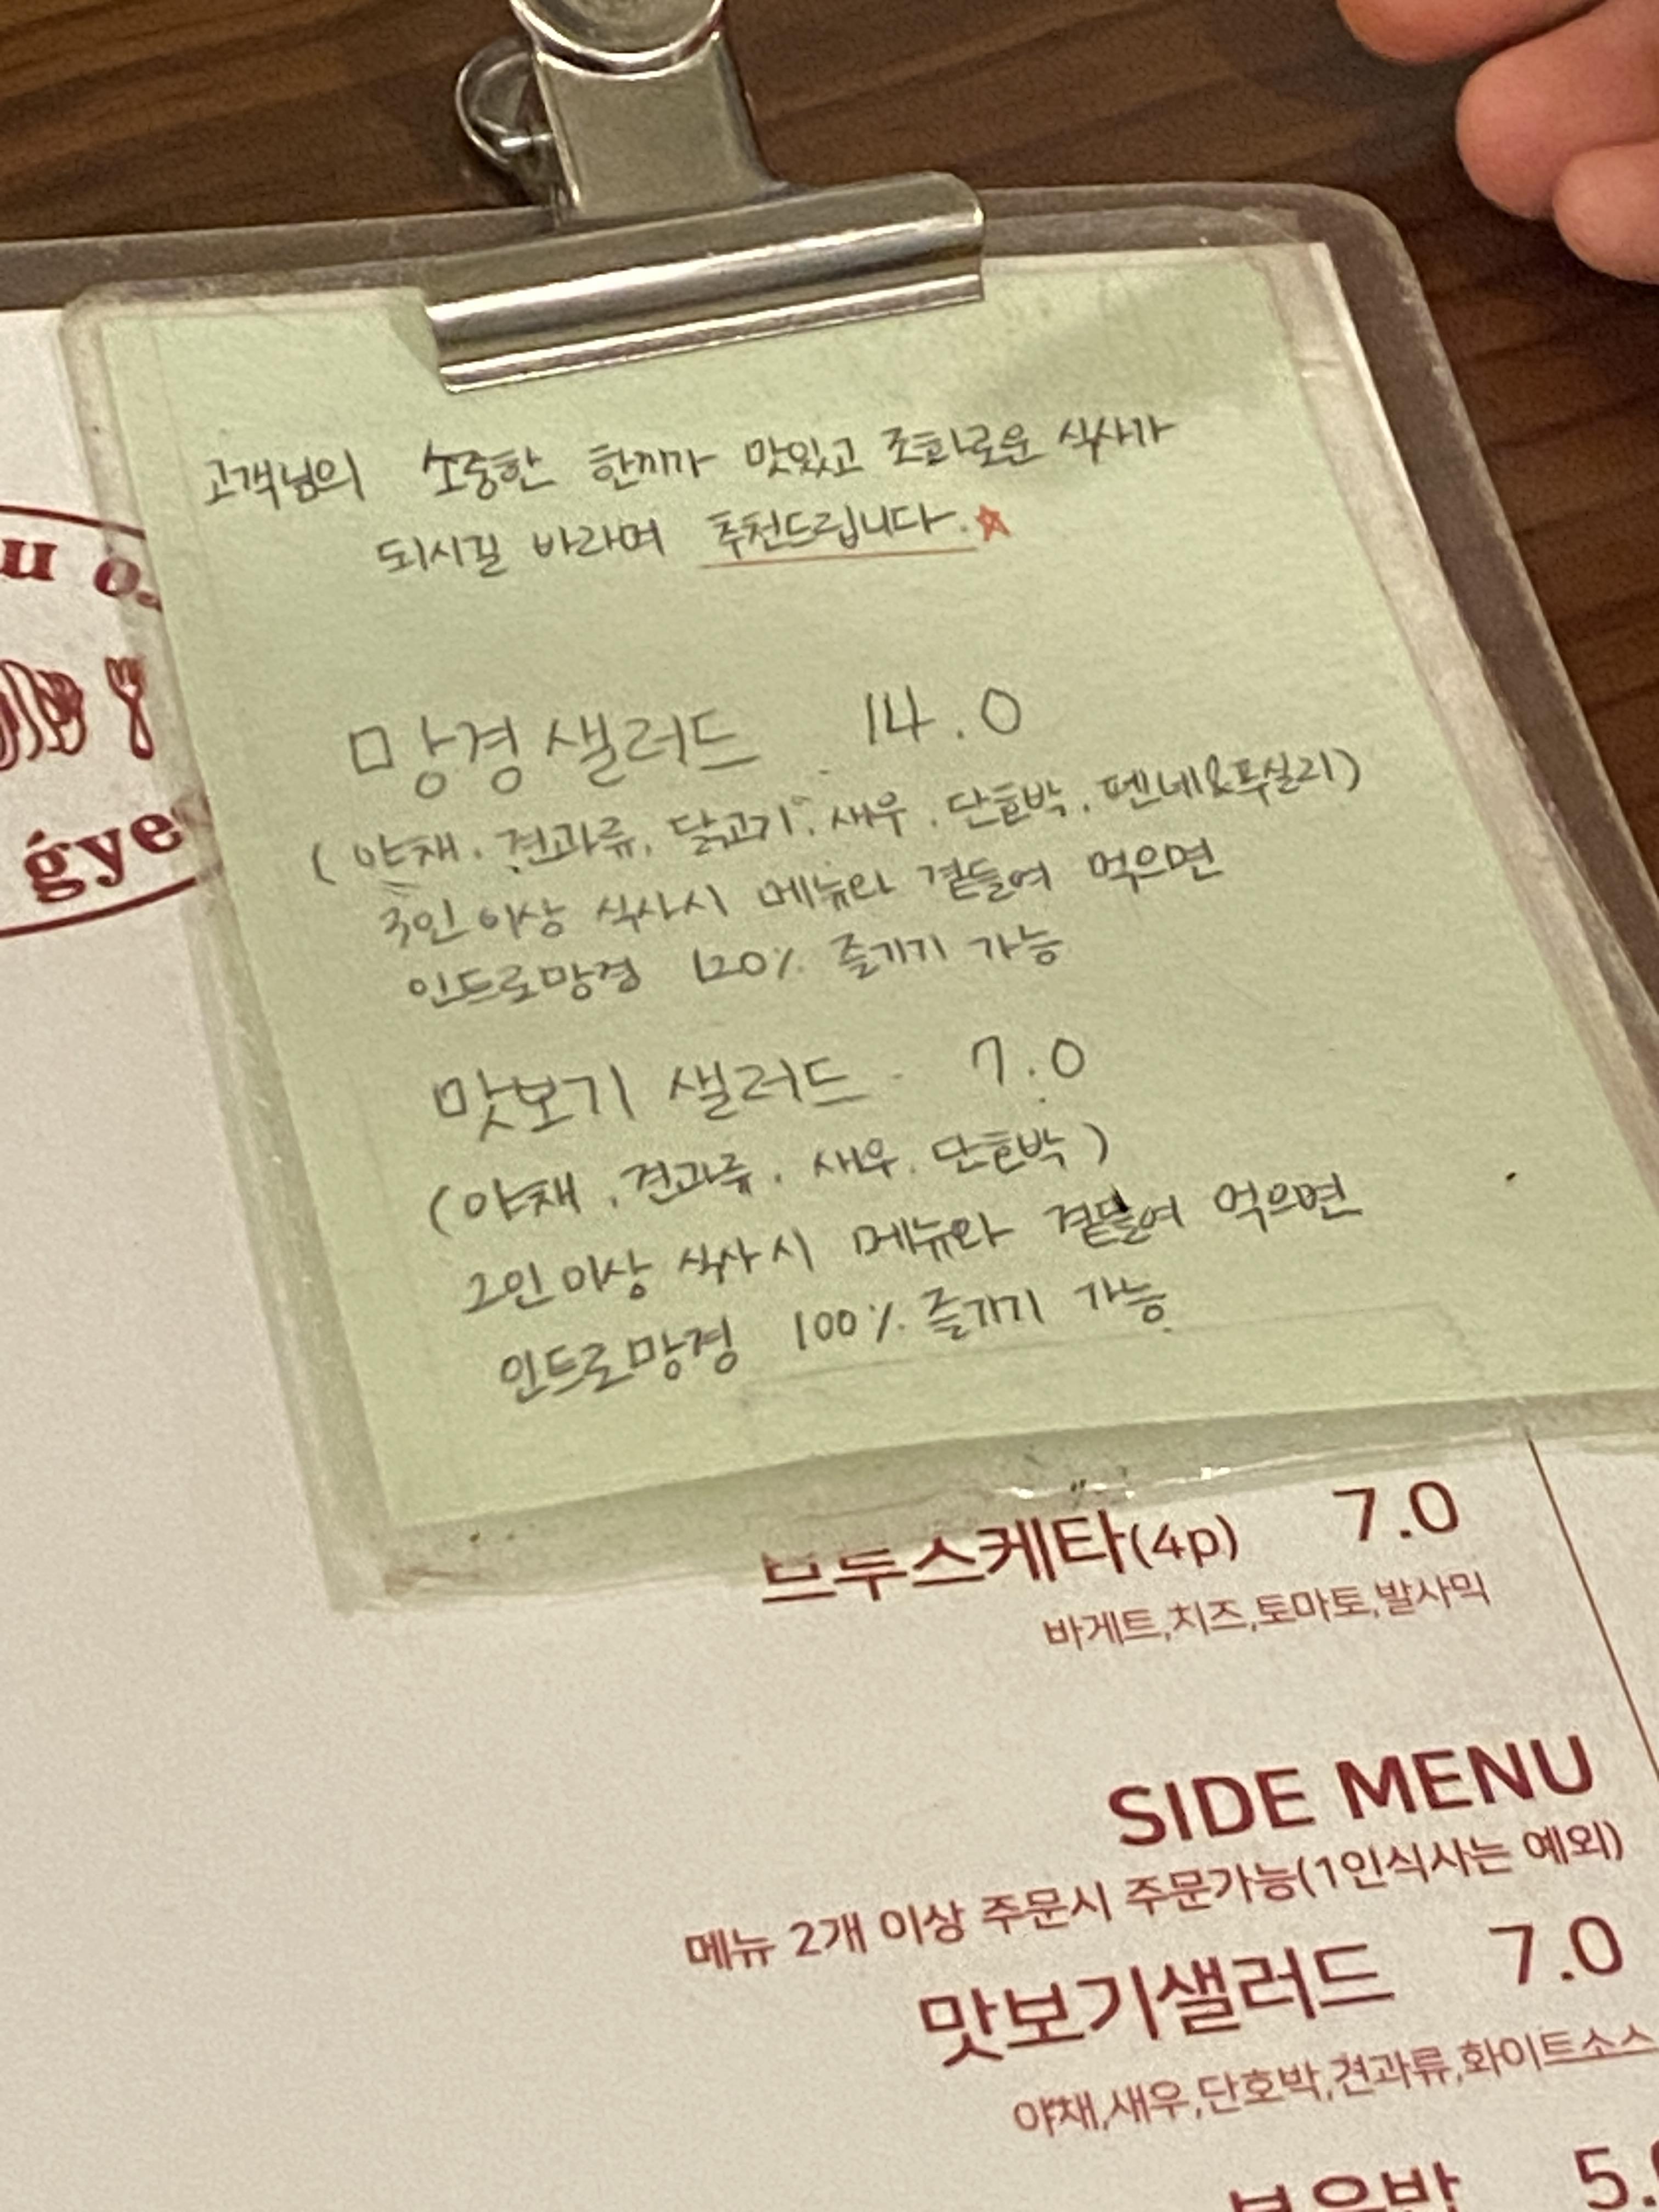 고객님의 소중한 한끼가 맛있고 조화로운 식사가
되시길 바라며 추천드립니다.
망경샐러드 14.0
(야채, 견과류, 닭고기, 새우, 단호박, 펜네&푸실리)
3인이상 식사시 메뉴와 곁들여 먹으면
인드로망경 120% 즐기기 가능
맛보기 샐러드 7.0
(야채, 견과류, 새우, 단호박)
2인이상 식사시 메뉴와 곁들여 먹으면
인드로망경 100% 즐기기 가능
gye
브루스케타(4p) 7.0
바게트,치즈,토마토,발사믹
SIDE MENU
메뉴 2개 이상 주문시 주문가능(1인식사는 예외)
맛보기샐러드 7.0
야채,새우,단호박,견과류,화이트소스